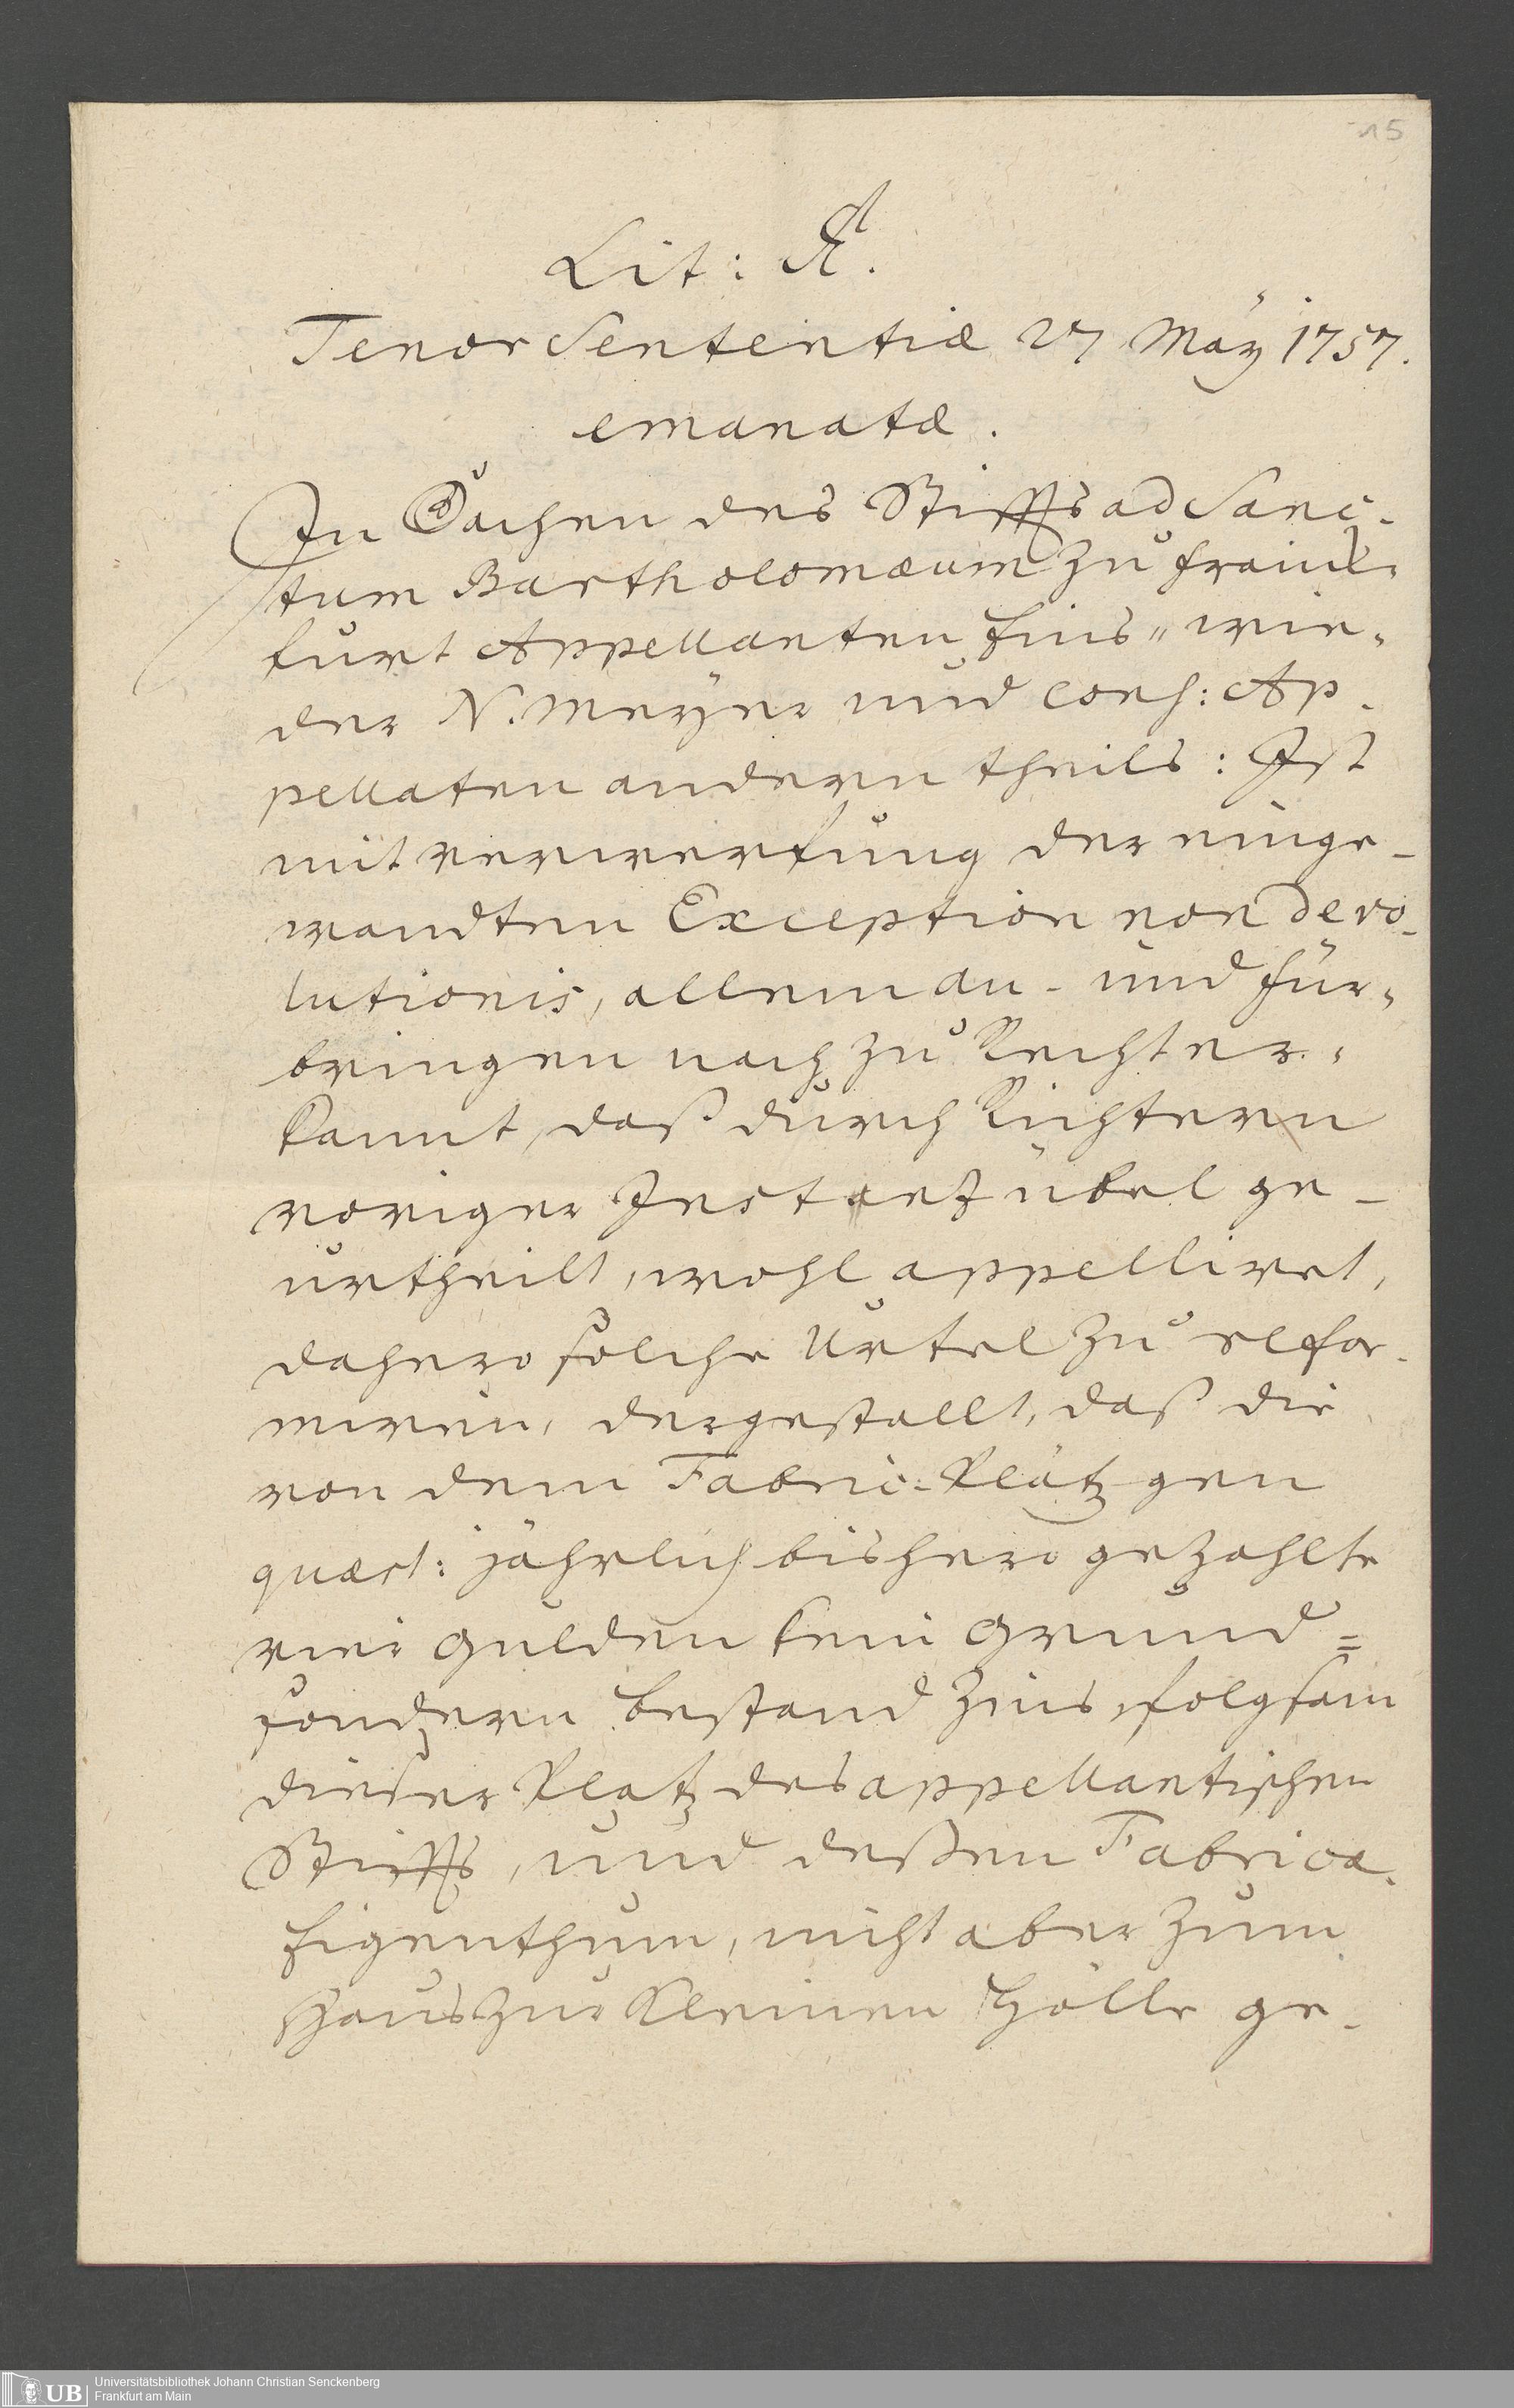 15
Lit: A.
Tenor Sententiæ 27 Maÿ 1757.
emanatæ.
In Sachen des Stiffts ad Sanc-
tum Bartholomæum zu franck-
furt Appellanten Eins- wie-
der N. Meÿer und Cons: Ap-
pellaten andern theils: Ist
mit verwerfung der einge-
wandten Exception non devo-
lutionis, allem an- und für-
bringen nach zu Recht er-
kannt, daß durch Richtern
voriger Instanz übel ge-
urtheilt, wohl appelliret,
dahero solche Urtel zu refor-
miren, dergestallt, daß die
von dem Fabric-Plätzgen
quæst: jährlich bishero gezahlte
vier Gulden kein Grund=
sondern bestand Zins, folgsam
dieser Platz des appellantischen
Stiffts, und deßen Fabricæ
Eigenthum, nicht aber zum
Haus zur Kleinen Hölle ge-
UB
Universitätsbibliothek Johann Christian Senckenberg
Frankfurt am Main